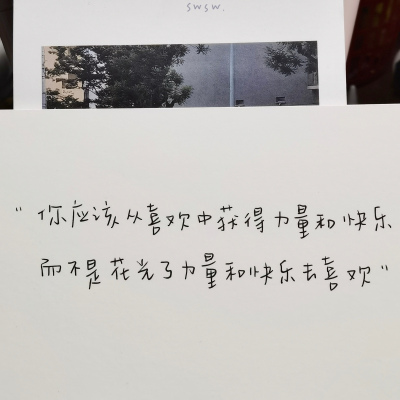 swsw.
“你应该从喜欢中获得力量和快乐
而不是花光了力量和快乐去喜欢”